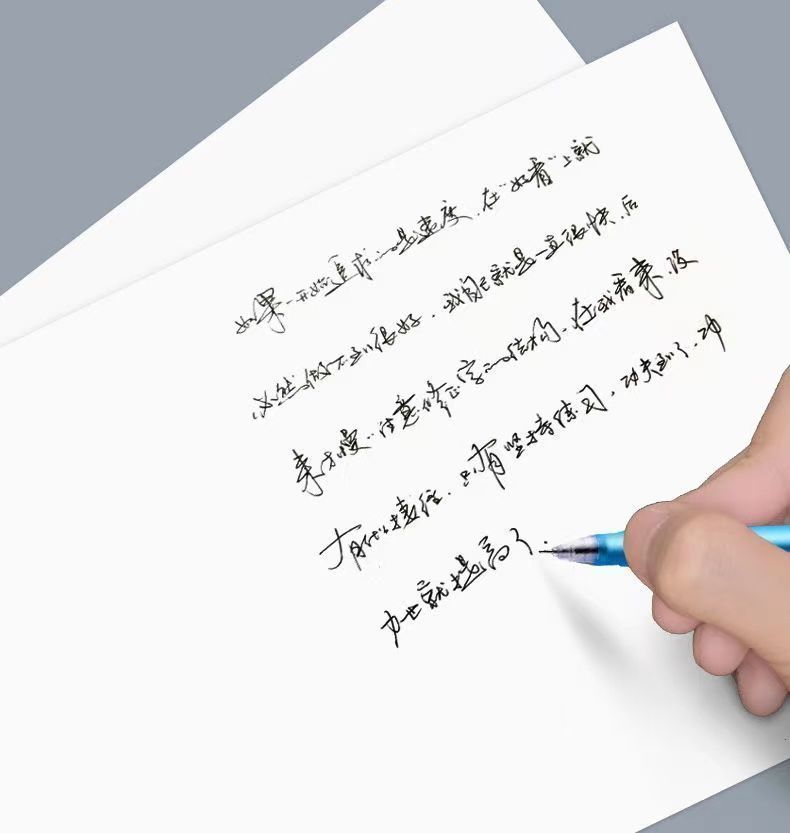 如果一开始追求的是速度，在“好看”上就
必然做不到很好，我自己就是一直很快，后
来才慢慢注意修正字的结构，在我看来，没
有什么捷径，只有坚持练习，功夫到了，功
力也就提高了。